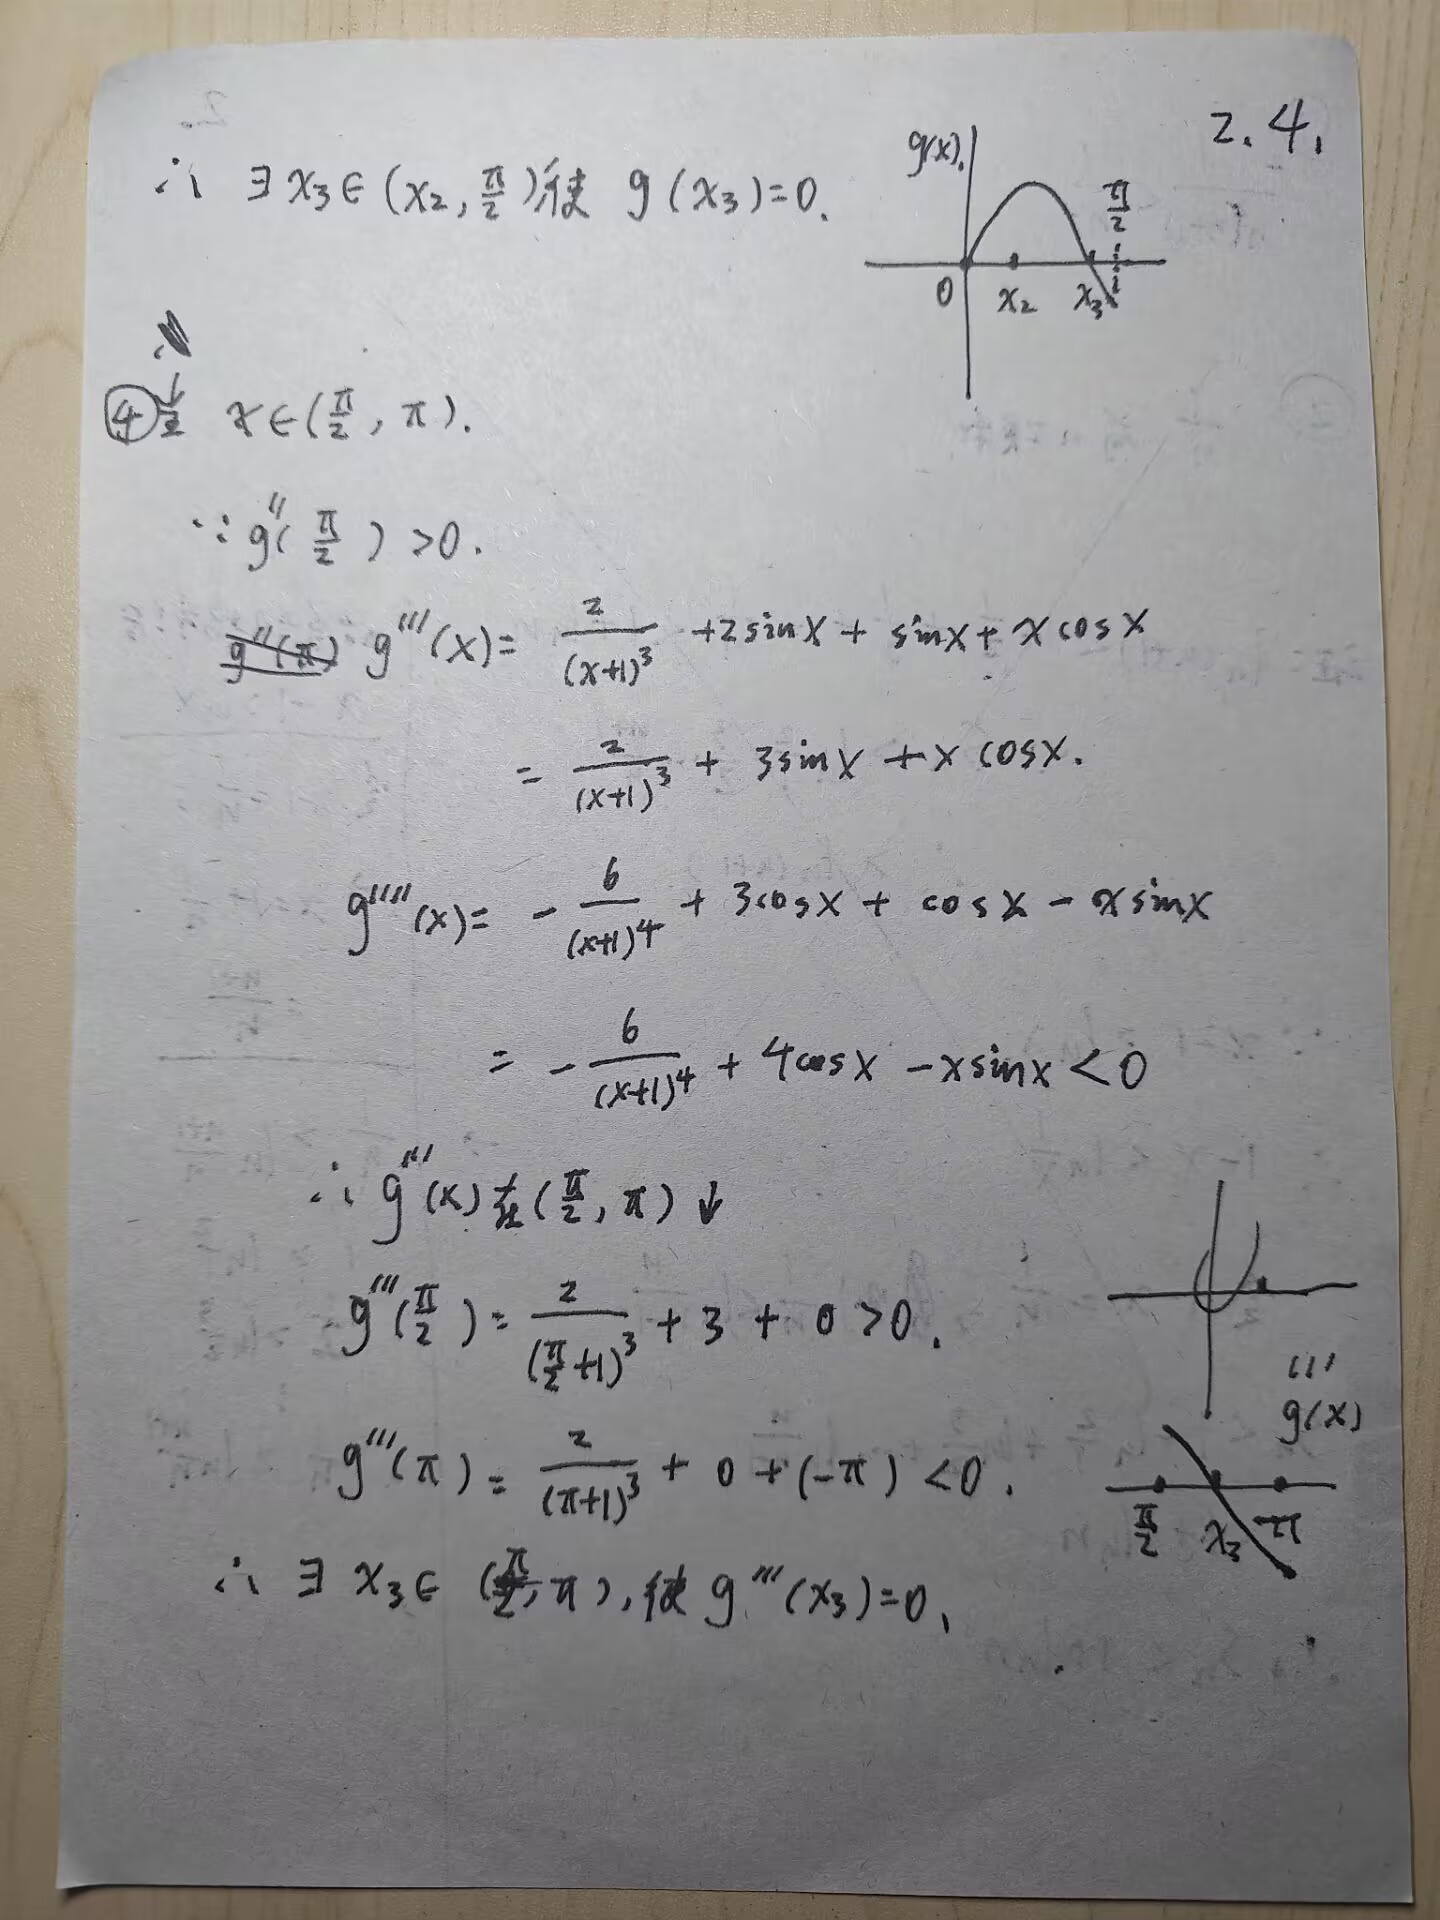 2.4.
∴ ∃ x₃∈(x₂, π/2)使 g(x₃)=0.
g(x).
π/2
0 x₂ x₃
④当 x∈(π/2, π).
∵ g''(π/2) >0.
g''(π) g'''(x)= 2/(x+1)³ +2sinx + sinx + xcosx
= 2/(x+1)³ + 3sinx + x cosx.
g''''(x)= - 6/(x+1)⁴ + 3cosx + cosx - xsinx
= - 6/(x+1)⁴ + 4cosx - xsinx <0
∴ g'''(x)在(π/2, π)↓
g'''(π/2)= 2/(π/2+1)³ + 3 + 0 >0.
g'''(x)
g'''(π)= 2/(π+1)³ + 0 +(-π) <0.
π/2 x₃ π
∴ ∃ x₃∈ (π/2, π), 使 g'''(x₃)=0.